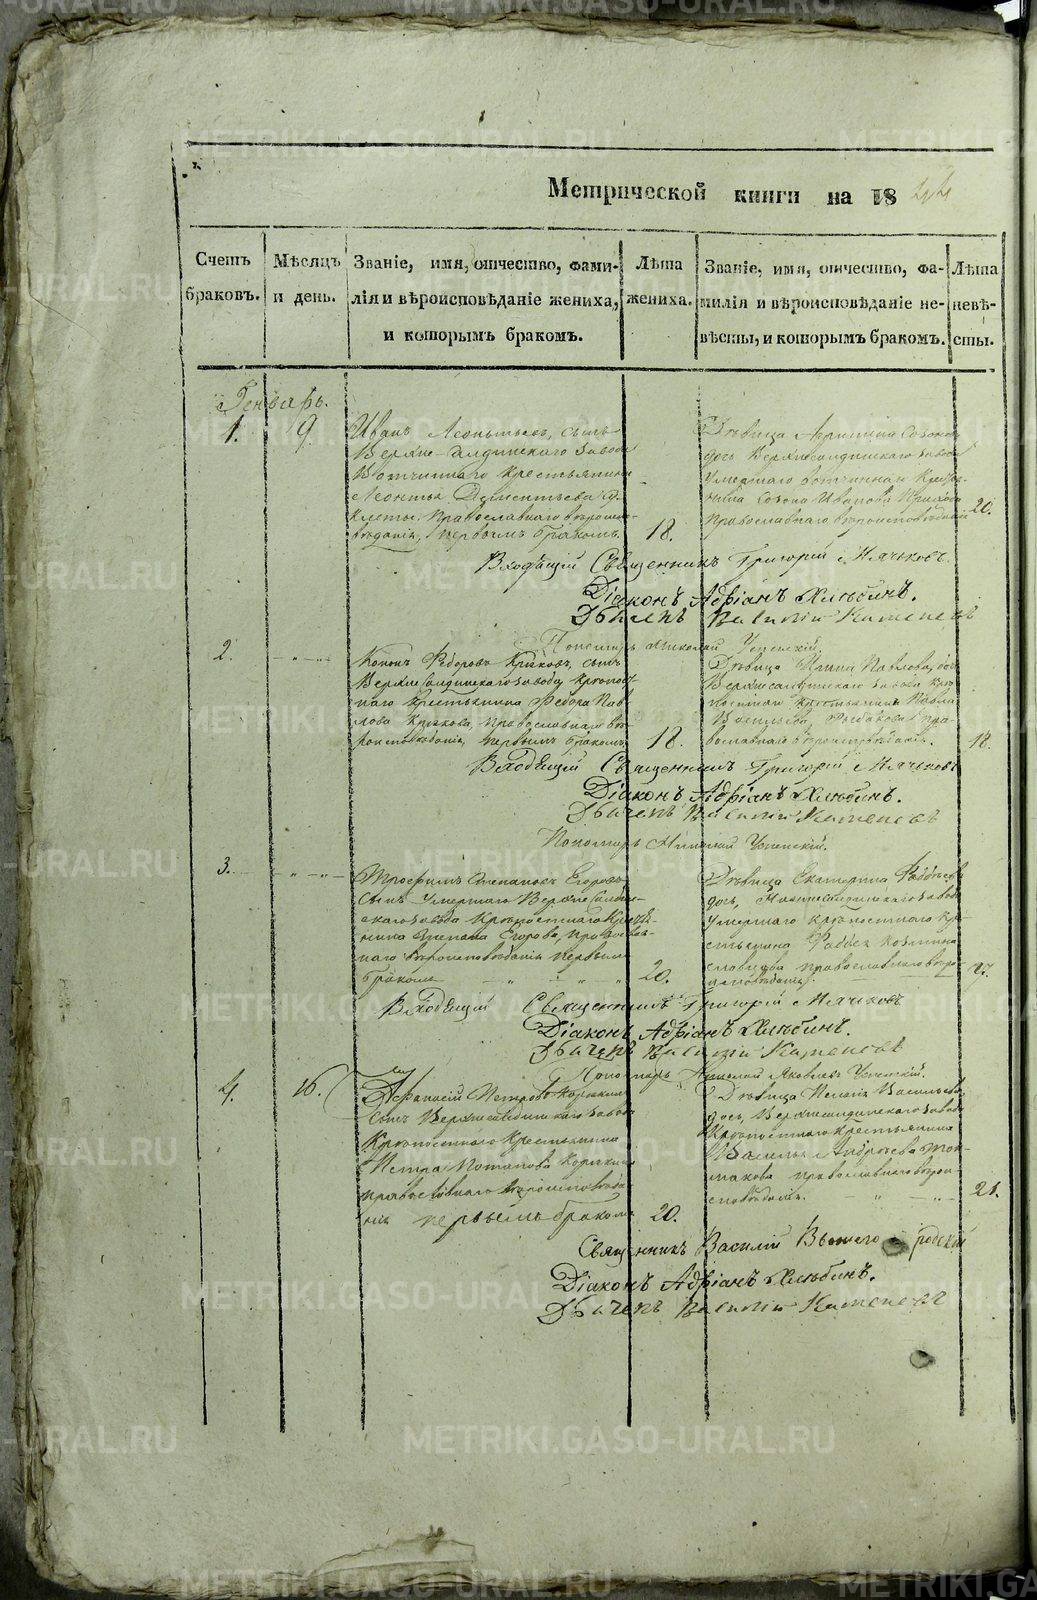 Метрической книги на 18
Счетъ браковъ.
Мѣсяцъ и день.
Званіе, имя, отчество, фами-
лія и вѣроисповѣданіе жениха,
и которымъ бракомъ.
Лѣта жениха.
Званіе, имя, отчество, фа-
милія и вѣроисповѣданіе не-
вѣсты, и которымъ бракомъ.
Лѣта невѣ-
сты.
Генварь.
1. 9.
Иванъ Леонтьевъ, сынъ
Верхне-Салдинскаго завода
Вотчиннаго крестьянина
Леонтья Дементьева
Православнаго вѣроиспо-
вѣданія, первымъ бракомъ. 18.
Дѣвица
дочь Верхнесалдинскаго завода
умершаго
Ивановa
православнаго вѣроисповѣданія 20.
Входящій Священникъ Григорій Мячковъ.
Діаконъ Адріанъ Хлюбинъ.
Дьячекъ Василій Каменевъ
Пономарь Николай Успенскій.
2.
Федоровъ Крюковъ, сынъ
Верхнесалдинскаго завода крѣпост-
наго крестьянина Федора Пав-
лова Крюкова, православнаго вѣ-
роисповѣданія, первымъ бракомъ 18.
Дѣвица Павлова, дочь
Верхнесалдинскаго завода крѣ-
постнаго крестьянина Павла
пра-
вославнаго вѣроисповѣданія. 18.
Входящій Священникъ Григорій Мячковъ
Діаконъ Адріанъ Хлюбинъ.
Дьячекъ Василій Каменевъ
Пономарь Николай Успенскій.
3.
Трофимъ Степановъ Егоровъ
сынъ умершаго Верхнесалдин-
скаго завода крѣпостнаго кресть-
янина Степана Егорова, православ-
наго вѣроисповѣданія первымъ
бракомъ 20.
Дѣвица Екатерина Фаддѣева
дочь, Нижнесалдинскаго завода
умершаго крѣпостнаго кре-
стьянина Фаддея
православнаго вѣро-
исповѣданія.
Входящій Священникъ Григорій Мячковъ
Діаконъ Адріанъ Хлюбинъ.
Дьячекъ Василій Каменевъ
Пономарь Николай Яковлевъ Успенскій.
4. 16.
Афанасій Петровъ Корякинъ
сынъ Верхнесалдинскаго завода
Крѣпостнаго Крестьянина
Петра Потапова Корякина
православнаго вѣроисповѣда-
нія первымъ бракомъ 20.
Дѣвица Васильева
дочь, Верхнесалдинскаго завода
Крѣпостнаго крестьянина
Василья Андреева
православнаго вѣрои-
сповѣданія. 21.
Священникъ Василій Вышегородскій
Діаконъ Адріанъ Хлюбинъ.
Дьячекъ Василій Каменевъ
METRIKI.GASO-URAL.RU